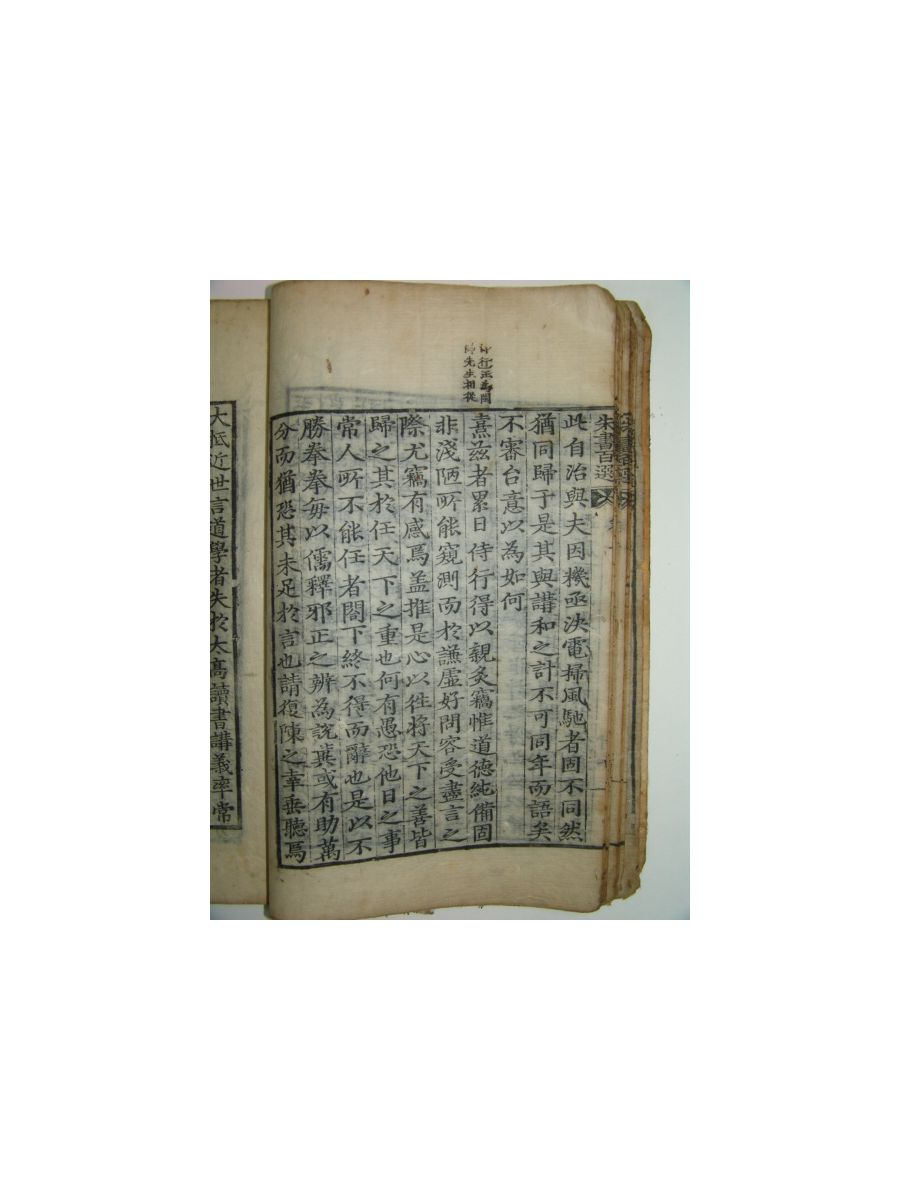 朱書百選
此自治與夫因機亟決電掃風馳者固不同然
猶同歸于是其與講和之計不可同年而語矣
不審台意以為如何
熹兹者累日侍行得以親炙竊惟道德純備固
非淺陋所能窺測而於謙虛好問容受盡言之
際尤竊有感焉盖推是心以徃將天下之善皆
歸之其於任天下之重也何有愚恐他日之事
常人所不能任者閤下終不得而辭也是以不
勝拳拳每以儒釋邪正之辨為說兾或有助萬
分而猶恐其未足於言也請復陳之幸垂聽焉
大抵近世言道學者失於太髙讀書講義率常